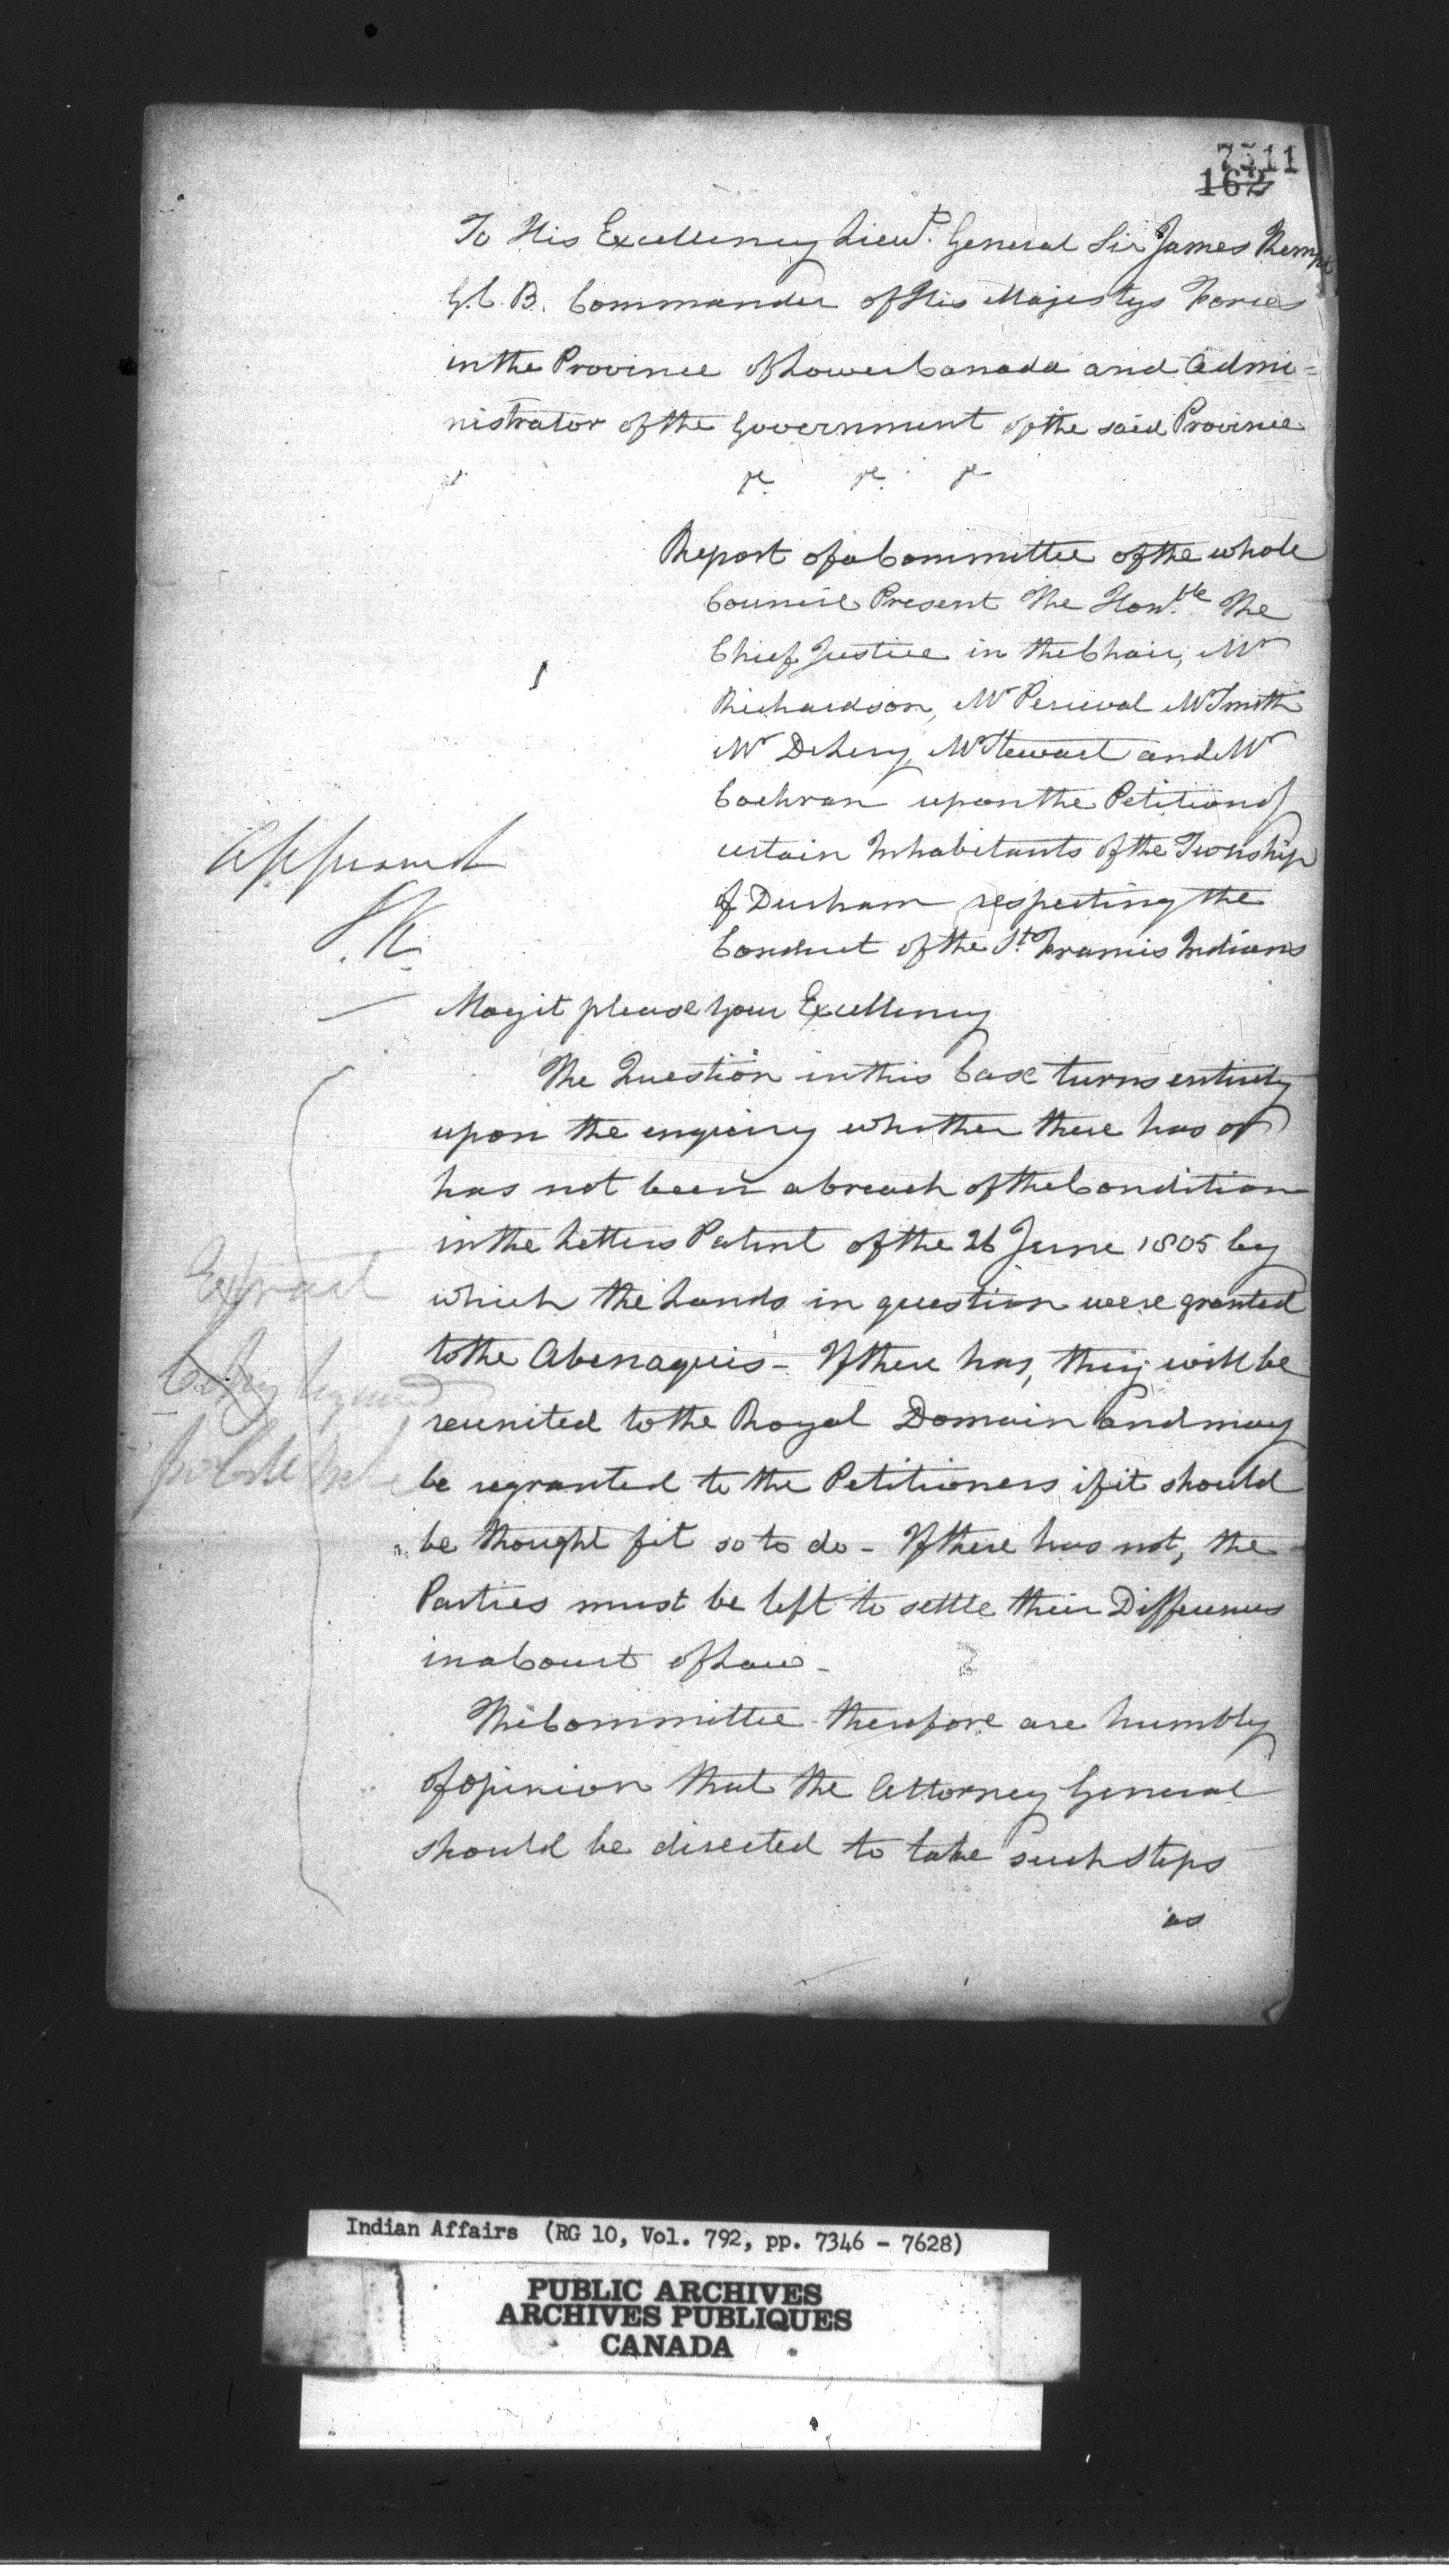 7511
162
To His Excellency Lieut. General Sir James Kempt
G.C.B. Commander of His Majestys Forces
in the Province of Lower Canada and Admi=
nistrator of the Government of the said Province
&c &c &c
Report of a Committee of the whole
Council Present The Honble The
Chief Justice in the Chair, Mr
Richardson, Mr Perceval Mr Smith
Mr DeLery, Mr Stewart and Mr
Cochran upon the Petition of
certain Inhabitants of the Township
of Durham respecting the
Conduct of the St. Francis Indians
Approved
J.K.
May it please your Excellency
The Question in this Case turns entirely
upon the enquiry whether there has or
has not been a breach of the Condition
in the Letters Patent of the 26 June 1805 by
which the Lands in question were granted
to the Abenaquis - If there has, they will be
reunited to the Royal Domain and may
be regranted to the Petitioners if it should
be thought fit so to do - If there has not, the
Parties must be left to settle their Differences
in a Court of Law -
Extract
The Committee therefore are humbly
of opinion that the Attorney General
should be directed to take such steps
as
Indian Affairs (RG 10, Vol. 792, pp. 7346 - 7628)
PUBLIC ARCHIVES
ARCHIVES PUBLIQUES
CANADA